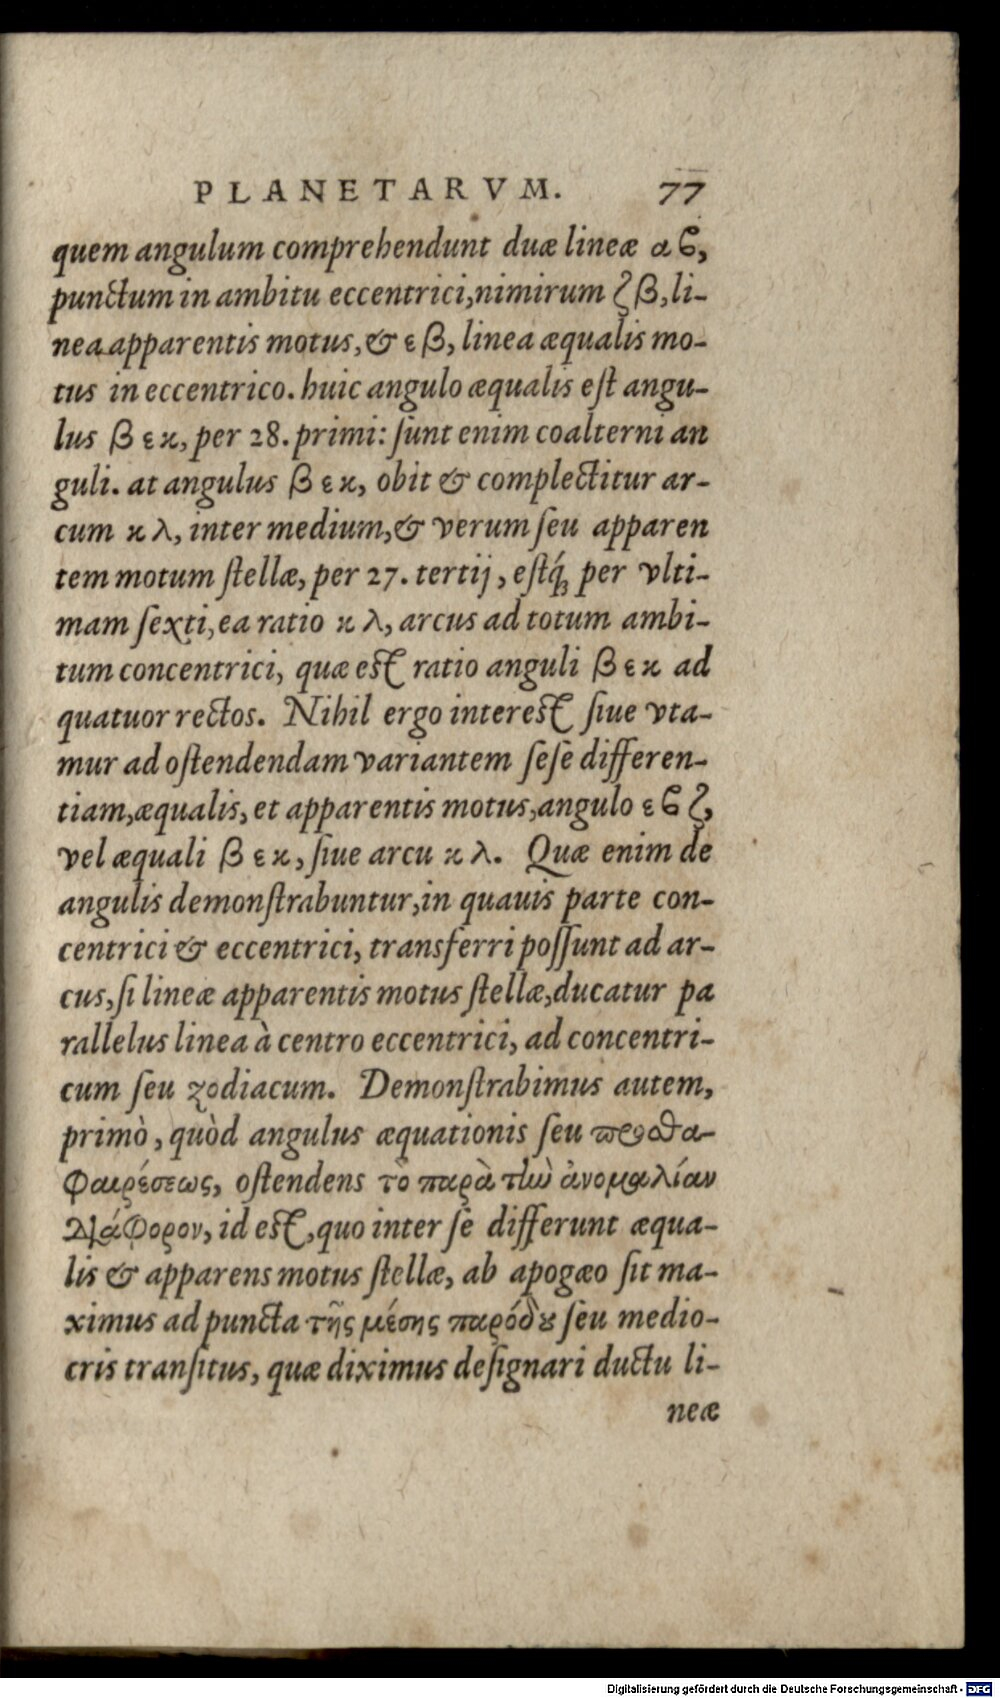 PLANETARVM. 77
quem angulum comprehendunt duæ lineæ α ϐ,
punctum in ambitu eccentrici, nimirum ζ β, li-
nea apparentis motus, & ε β, linea æqualis mo-
tus in eccentrico. huic angulo æqualis eſt angu-
lus β ε κ, per 28. primi: ſunt enim coalterni an
guli. at angulus β ε κ, obit & complectitur ar-
cum κ λ, inter medium, & verum ſeu apparen
tem motum ſtellæ, per 27. tertij, eſtq́; per vlti-
mam ſexti, ea ratio κ λ, arcus ad totum ambi-
tum concentrici, quæ eſt ratio anguli β ε κ ad
quatuor rectos. Nihil ergo intereſt ſiue vta-
mur ad oſtendendam variantem ſeſe differen-
tiam, æqualis, et apparentis motus, angulo ε ϐ ζ,
vel æquali β ε κ, ſiue arcu κ λ. Quæ enim de
angulis demonſtrabuntur, in quauis parte con-
centrici & eccentrici, transferri poſſunt ad ar-
cus, ſi lineæ apparentis motus ſtellæ, ducatur pa
rallelus linea à centro eccentrici, ad concentri-
cum ſeu zodiacum. Demonſtrabimus autem,
primò, quòd angulus æquationis ſeu προσθα-
φαιρέσεως, oſtendens τὸ παρὰ τὴν ἀνομαλίαν
διάφορον, id eſt, quo inter ſe differunt æqua-
lis & apparens motus ſtellæ, ab apogæo ſit ma-
ximus ad puncta τῆς μέσης παρόδȣ ſeu medio-
cris tranſitus, quæ diximus deſignari ductu li-
neæ
Digitalisierung gefördert durch die Deutsche Forschungsgemeinschaft - DFG